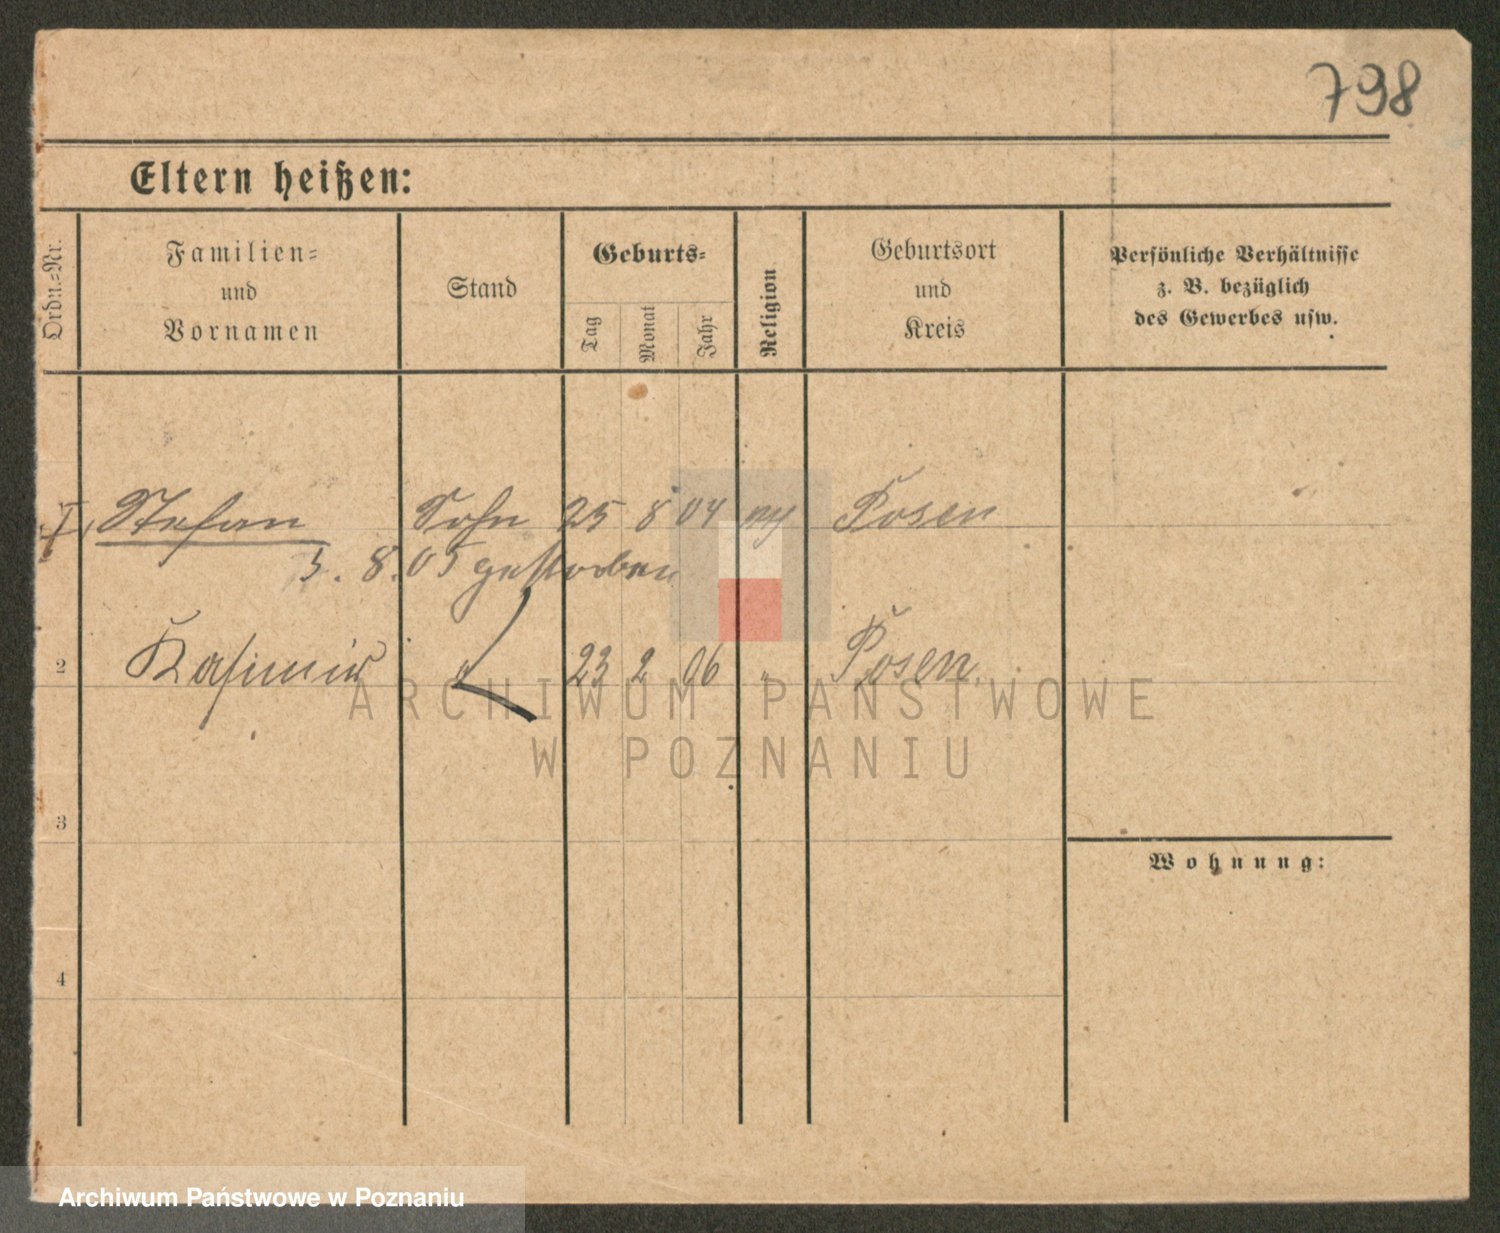 798
Eltern heißen:
Ordn.-Nr.
Familien-
und
Vornamen
Stand
Geburts-
Tag
Monat
Jahr
Religion
Geburtsort
und
Kreis
Persönliche Verhältnisse
z. B. bezüglich
des Gewerbes usw.
Stefan Sohn 25 8 04 Posen
3. 8. 05 gestorben
2 Kasimir " 23 2 06 " Posen.
ARCHIWUM PAŃSTWOWE
W POZNANIU
3
Wohnung:
4
Archiwum Państwowe w Poznaniu